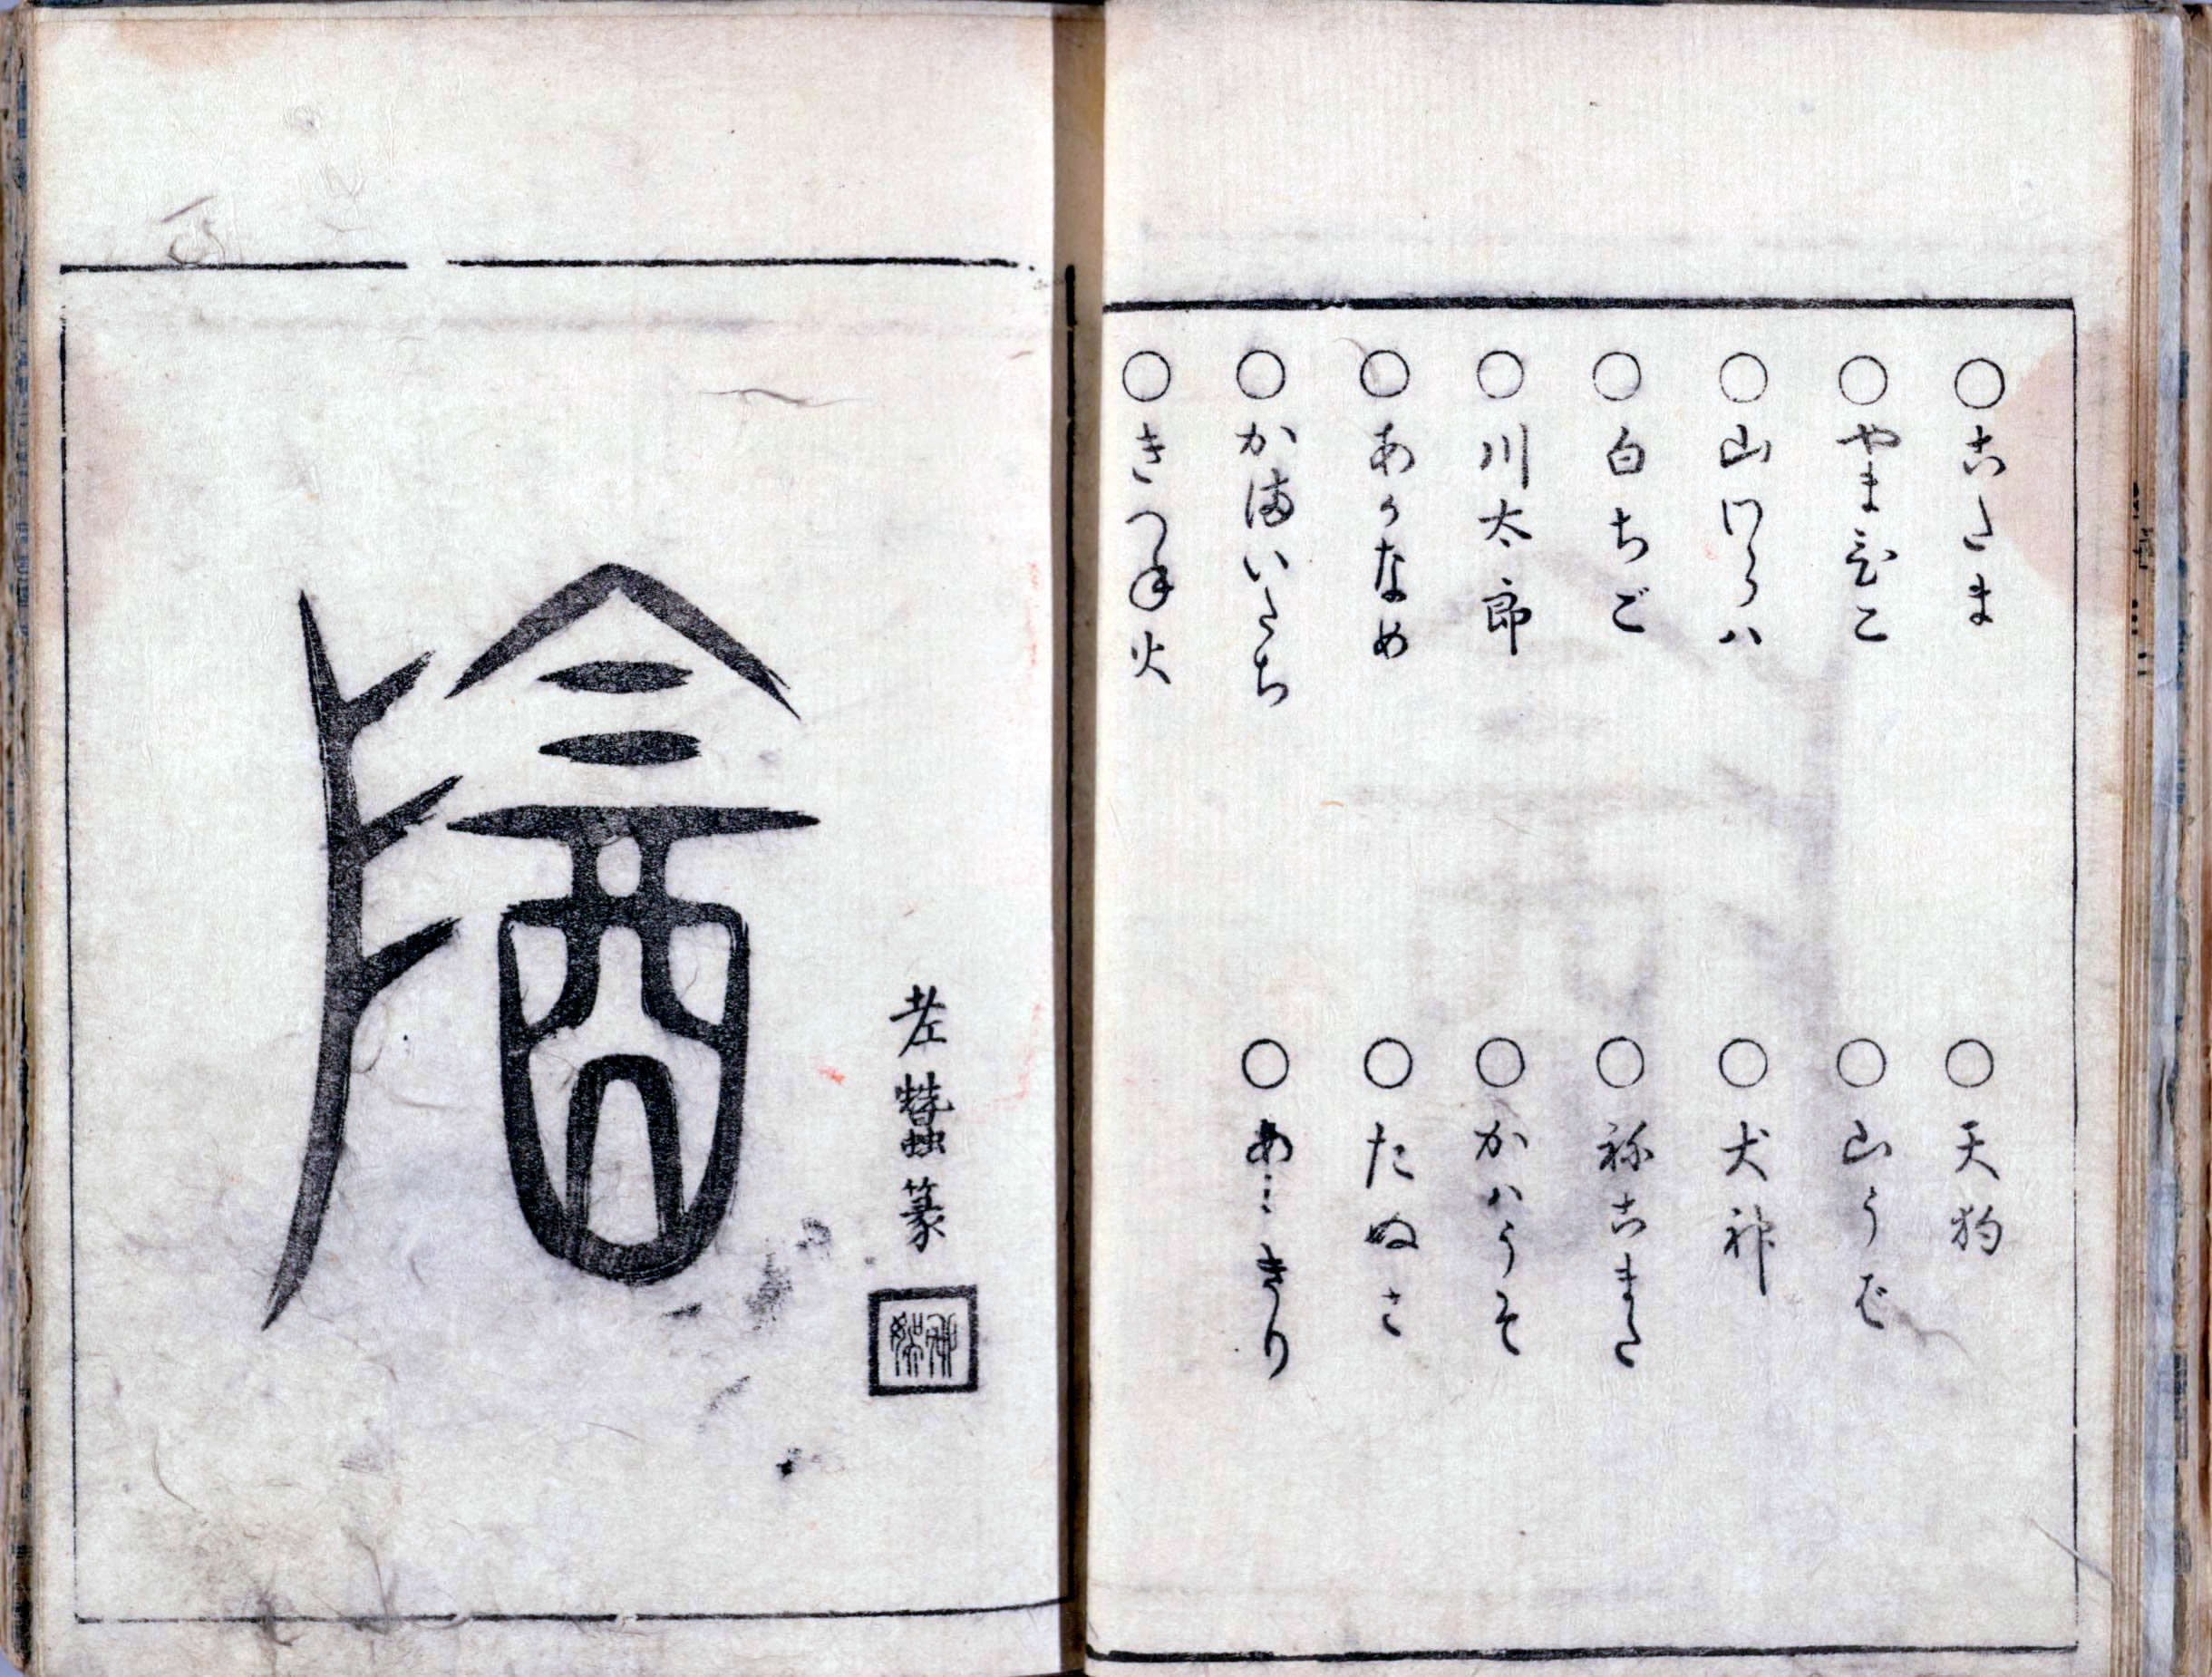 ○こたま ○天狗
○やまびこ ○山うば
○山わらハ ○犬神
○白ちご ○祢こまた
○川太郎 ○かハうそ
○あかなめ ○たぬき
○かまいたち ○あみきり
○きつね火
蠶篆
陰